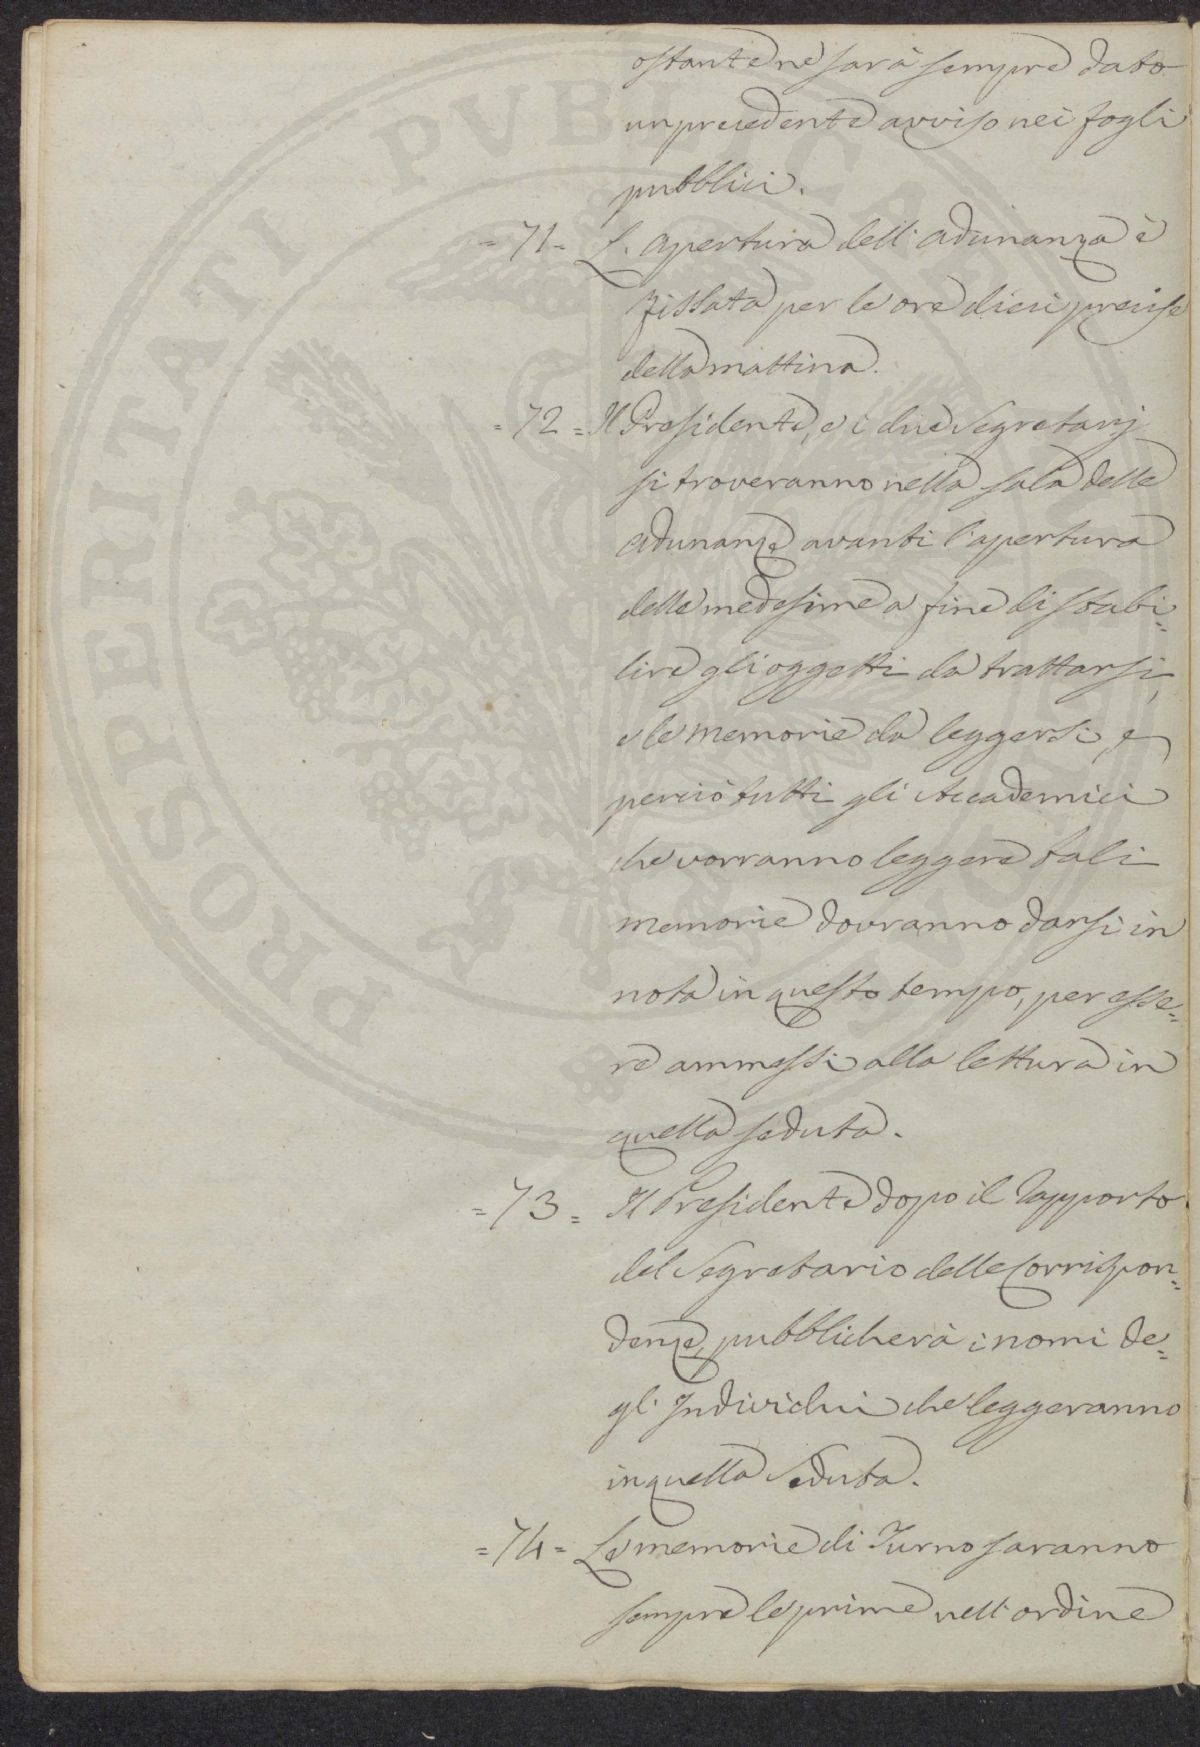 ostante ne sarà sempre dato
un precedente avviso nei fogli
pubblici.
= 71 = L'apertura dell'adunanza è
fissata per le ore dieci precise
della mattina.
= 72 = Il Presidente, e i due Segretarj
si troveranno nella sala delle
adunanze avanti l'apertura
delle medesime a fine di stabi=
lire gli oggetti da trattarsi,
e le memorie da leggersi, e
perciò tutti gli Accademici
che vorranno leggere tali
memorie dovranno darsi in
nota in questo tempo, per esse=
re ammessi alla lettura in
quella seduta.
= 73 = Il Presidente dopo il Rapporto
del Segretario delle Corrispon=
denze, pubblicherà i nomi de=
gl'Individui che leggeranno
in quella Seduta.
= 74 = Le memorie di Turno saranno
sempre le prime nell'ordine
PROSPERITATI PUBLICAE